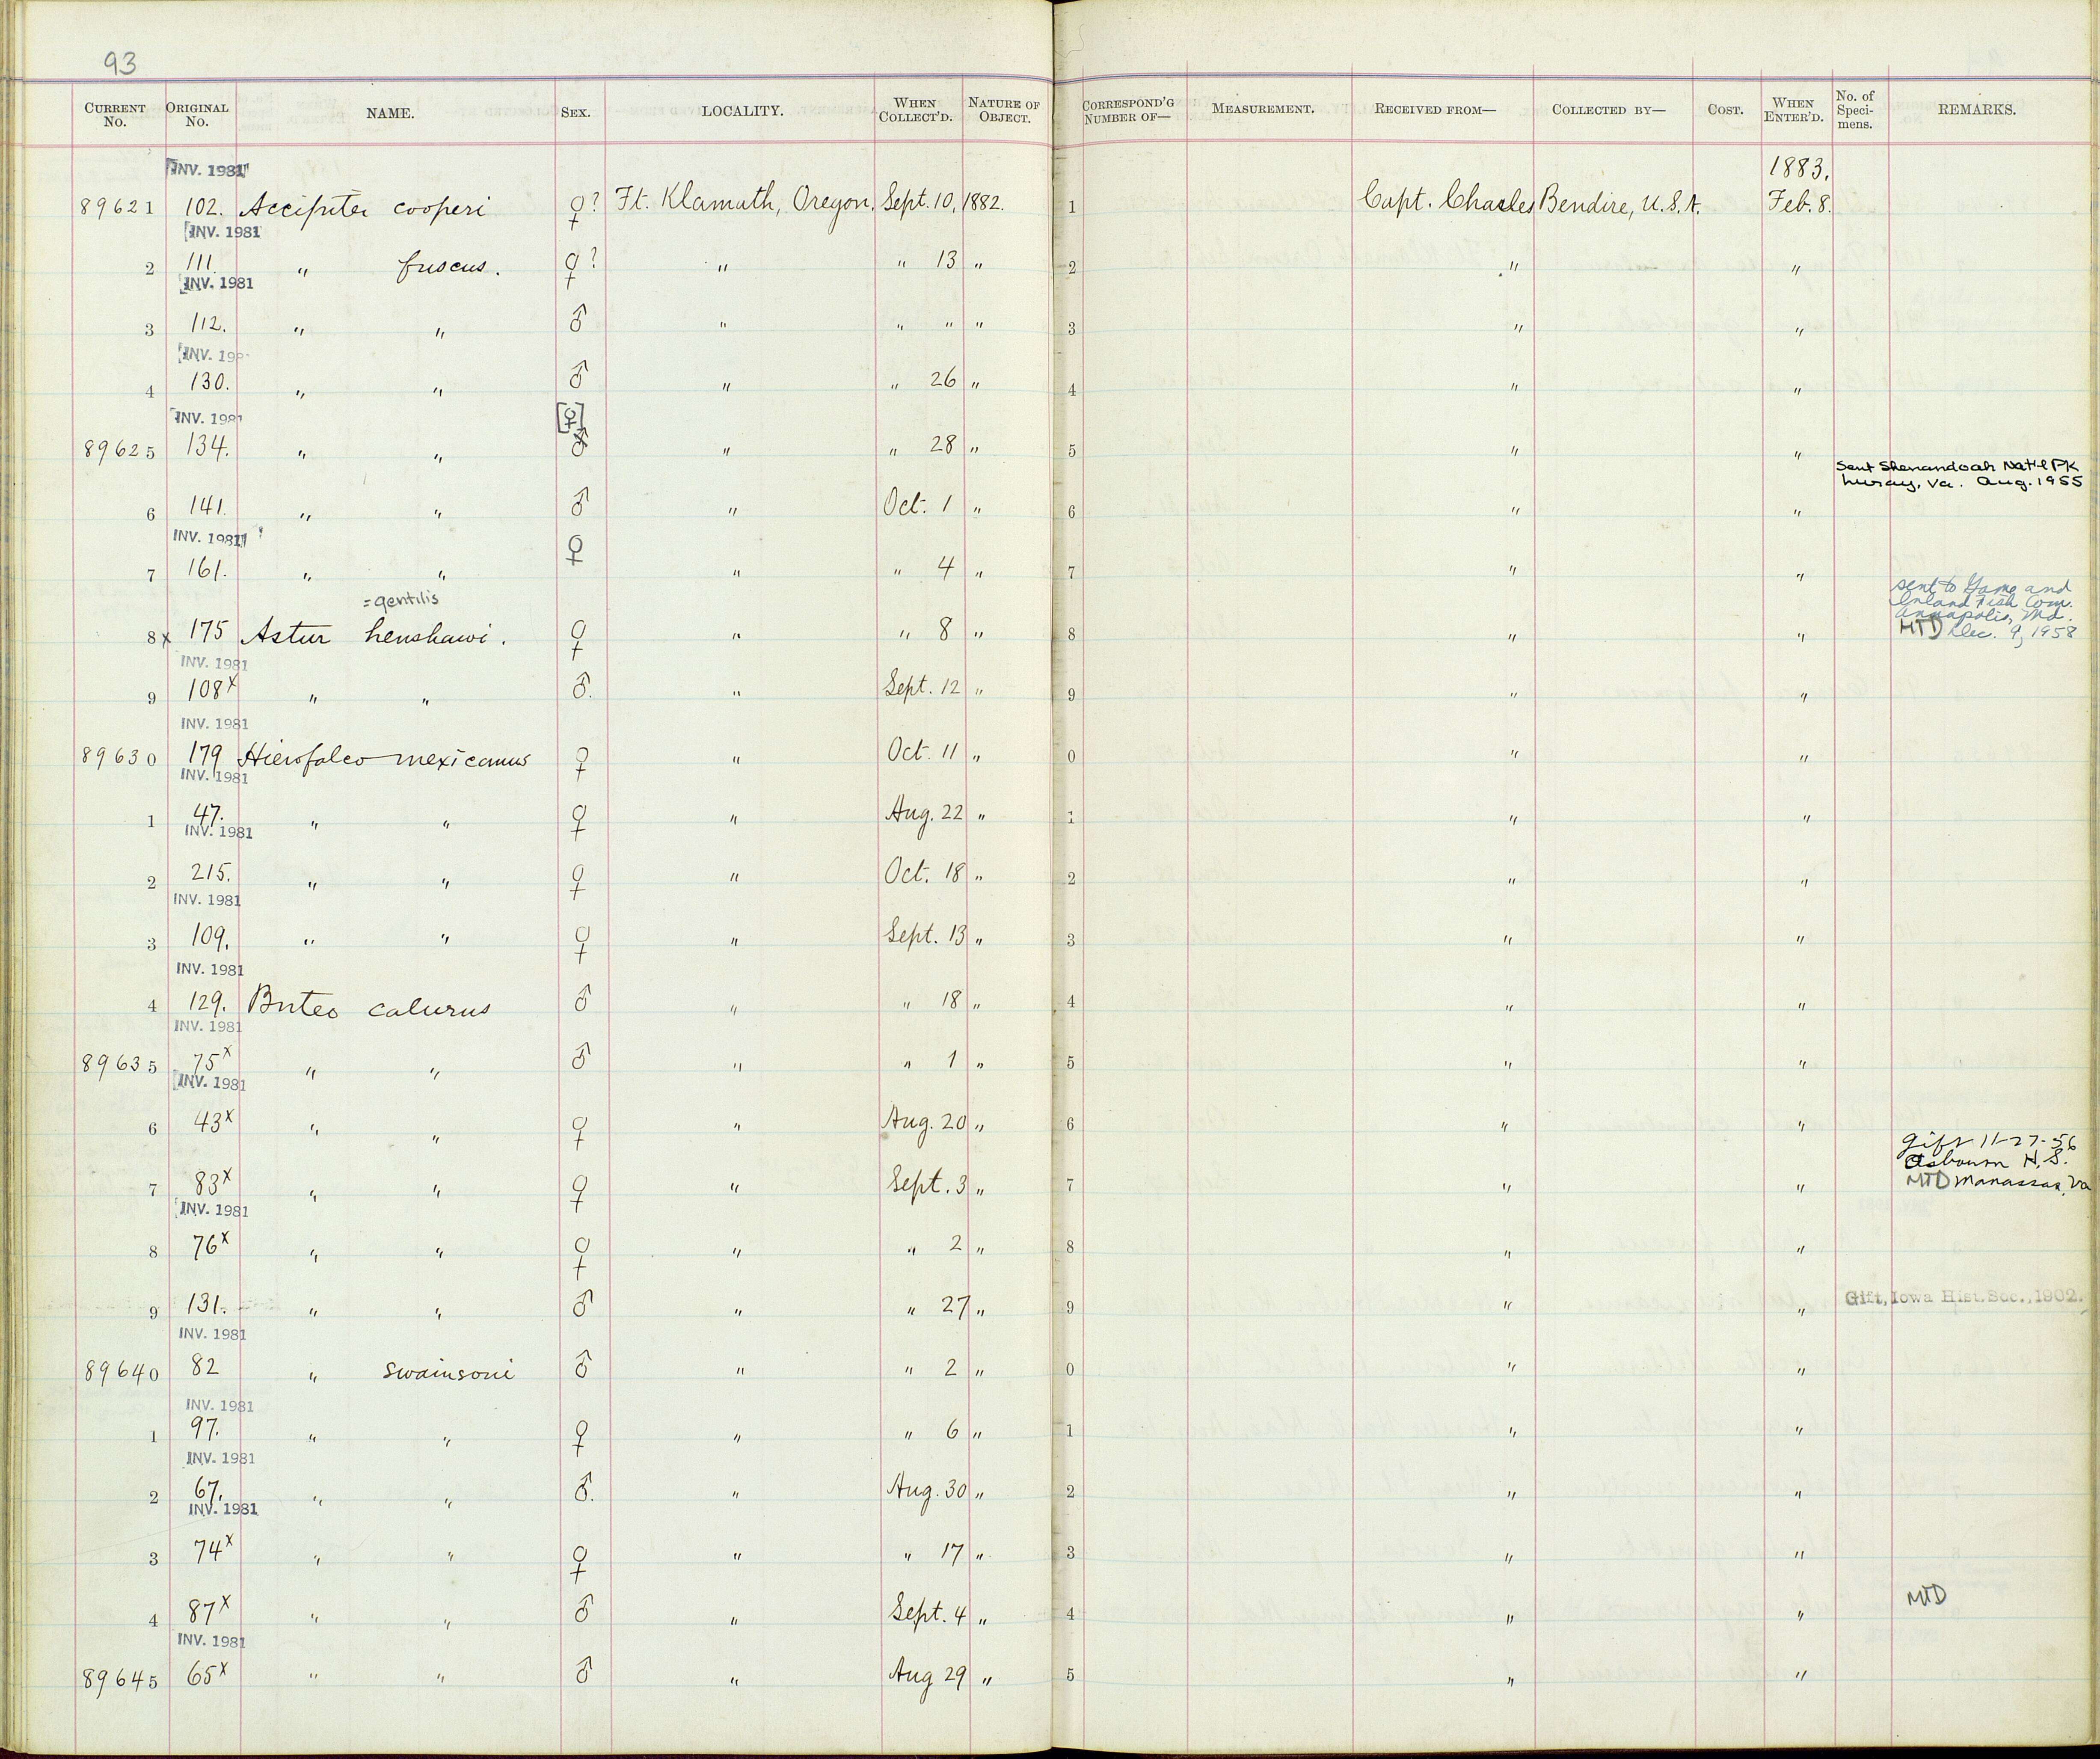 93
CURRENT No. ORIGINAL No. NAME. SEX. LOCALITY. WHEN COLLECT'D. NATURE OF OBJECT. CORRESPOND'G NUMBER OF— MEASUREMENT. RECEIVED FROM— COLLECTED BY— COST. WHEN ENTER'D. No. of Speci-mens. REMARKS.
INV. 1981 1883.
89621 102. Accipiter cooperi ♀? Ft. Klamath, Oregon. Sept. 10, 1882. 1 Capt. Charles Bendire, U.S.A. Feb. 8.
INV. 1981
2 111. " fuscus. ♀? " " 13 " 2 " "
INV. 1981
3 112. " " ♂ " " " " 3 " "
INV. 198
4 130. " " ♂ " " 26 " 4 " "
INV. 1981 [♀]
89625 134. " " ♂ " " 28 " 5 " "
Sent Shenandoah Nat'l Pk
Luray, Va. Aug. 1955
6 141. " " ♂ " Oct. 1 " 6 " "
INV. 1981
7 161. " " ♀ " " 4 " 7 " "
=gentilis
sent to Game and
Inland Fish Com.
Annapolis, Md.
8x 175 Astur henshawi. ♀ " " 8 " 8 " " MTD Dec. 9, 1958
INV. 1981
9 108x " " ♂. " Sept. 12 " 9 " "
INV. 1981
89630 179 Hierofalco mexicanus ♀ " Oct. 11 " 0 " "
INV. 1981
1 47. " " ♀ " Aug. 22 " 1 " "
INV. 1981
2 215. " " ♀ " Oct. 18 " 2 " "
INV. 1981
3 109. " " ♀ " Sept. 13 " 3 " "
INV. 1981
4 129. Buteo calurus ♂ " " 18 " 4 " "
INV. 1981
89635 75x " " ♂ " " 1 " 5 " "
INV. 1981
6 43x " " ♀ " Aug. 20 " 6 " "
Gift 11-27-56
Osbourn H.S.
7 83x " " ♀ " Sept. 3 " 7 " " MTD Manassas, Va
INV. 1981
8 76x " " ♀ " " 2 " 8 " "
9 131. " " ♂ " " 27 " 9 " " Gift, Iowa Hist. Soc., 1902.
INV. 1981
89640 82 " swainsoni ♂ " " 2 " 0 " "
INV. 1981
1 97. " " ♀ " " 6 " 1 " "
INV. 1981
2 67. " " ♂. " Aug. 30 " 2 " "
INV. 1981
3 74x " " ♀ " " 17 " 3 " "
4 87x " " ♂ " Sept. 4 " 4 " " MTD
INV. 1981
89645 65x " " ♂ " Aug 29 " 5 " "